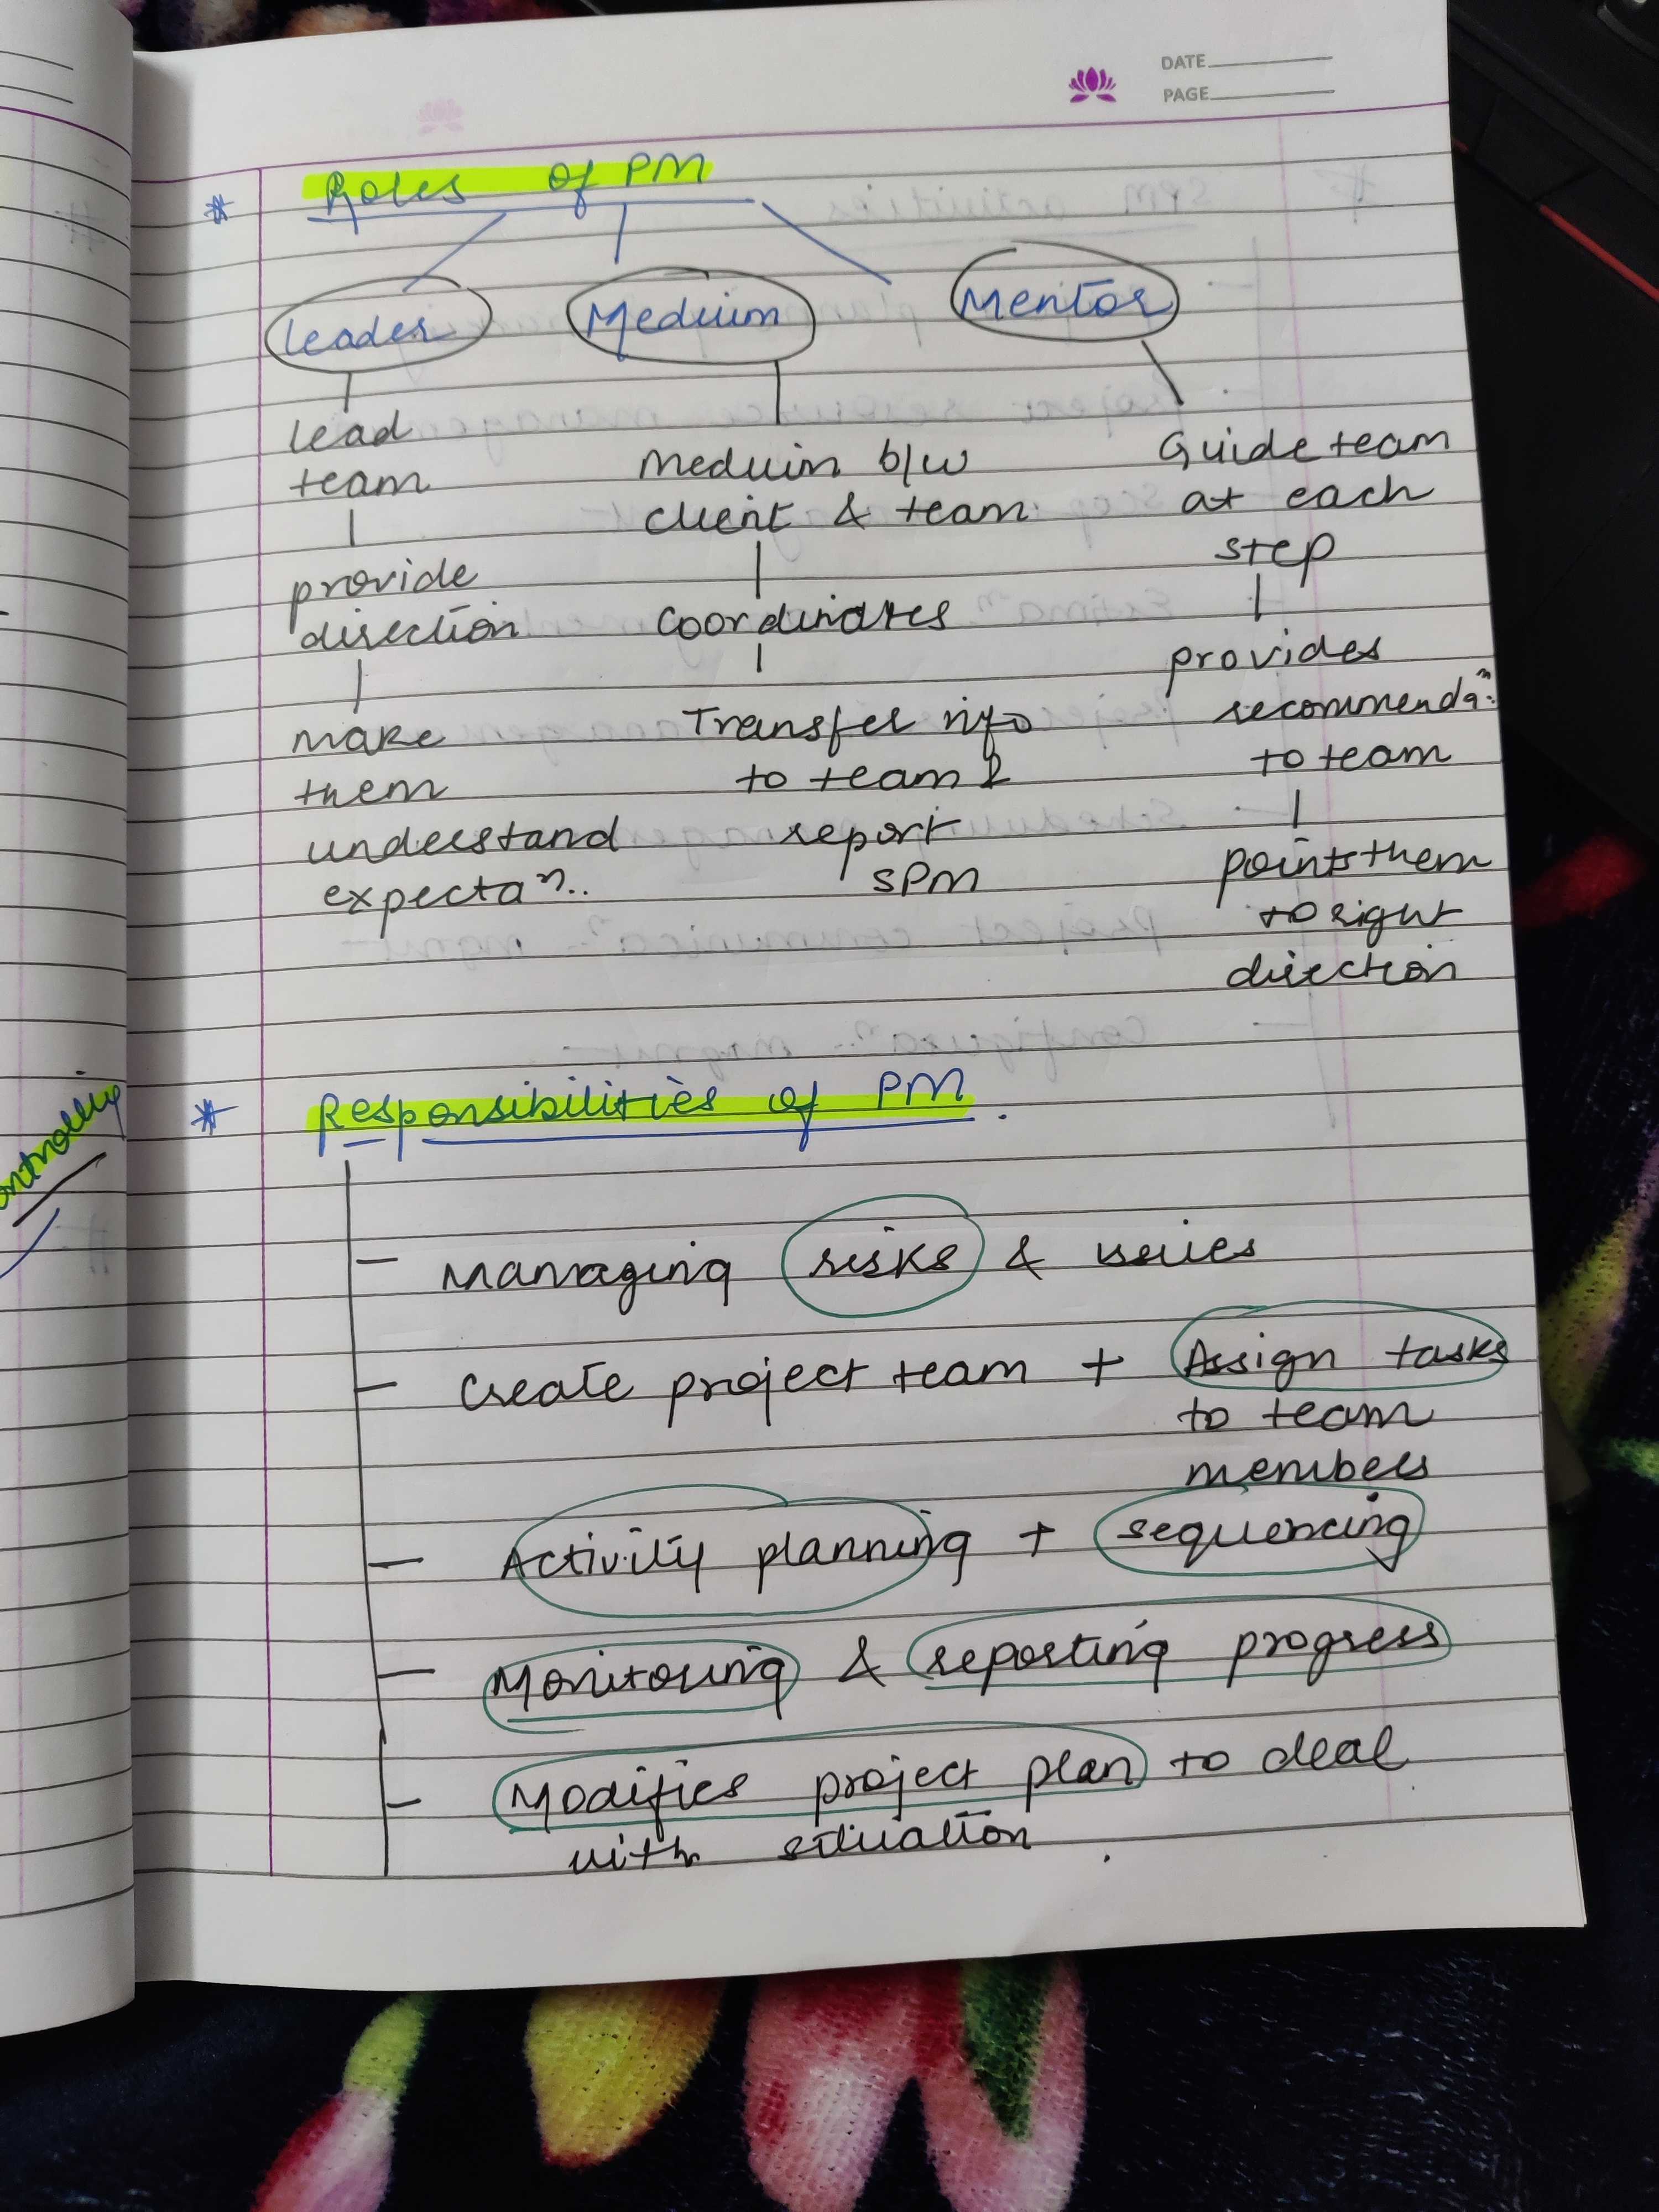 DATE
PAGE
* Roles of PM
Leader
Medium
Mentor
lead
team
provide
direction
make
them
understand
expectaⁿ..
Medium b/w
client & team
coordinates
Transfer info
to team &
report
SPM
Guide team
at each
step
provides
recommendaⁿ.
to team
points them
to right
direction
* Responsibilities of PM.
- Managing risks & issues
- Create project team + Assign tasks
to team
members
- Activity planning + sequencing
- Monitoring & reporting progress
- Modifies project plan to deal
with situation.